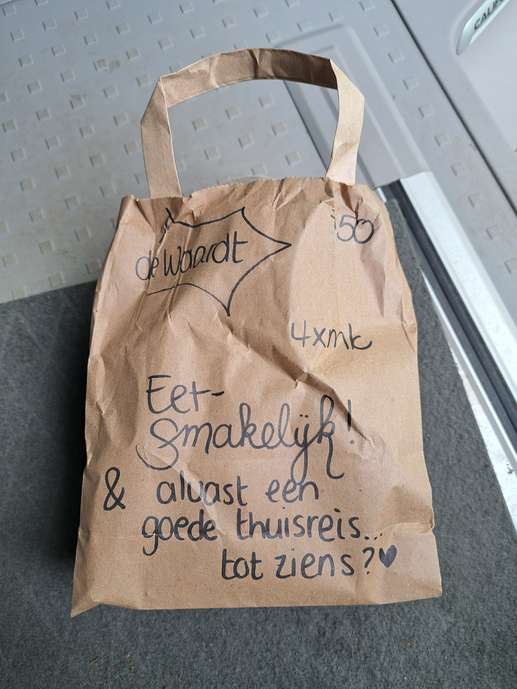 de Waardt
50
4xmk
Eet-
Smakelijk!
& alvast een
goede thuisreis...
tot ziens?♥